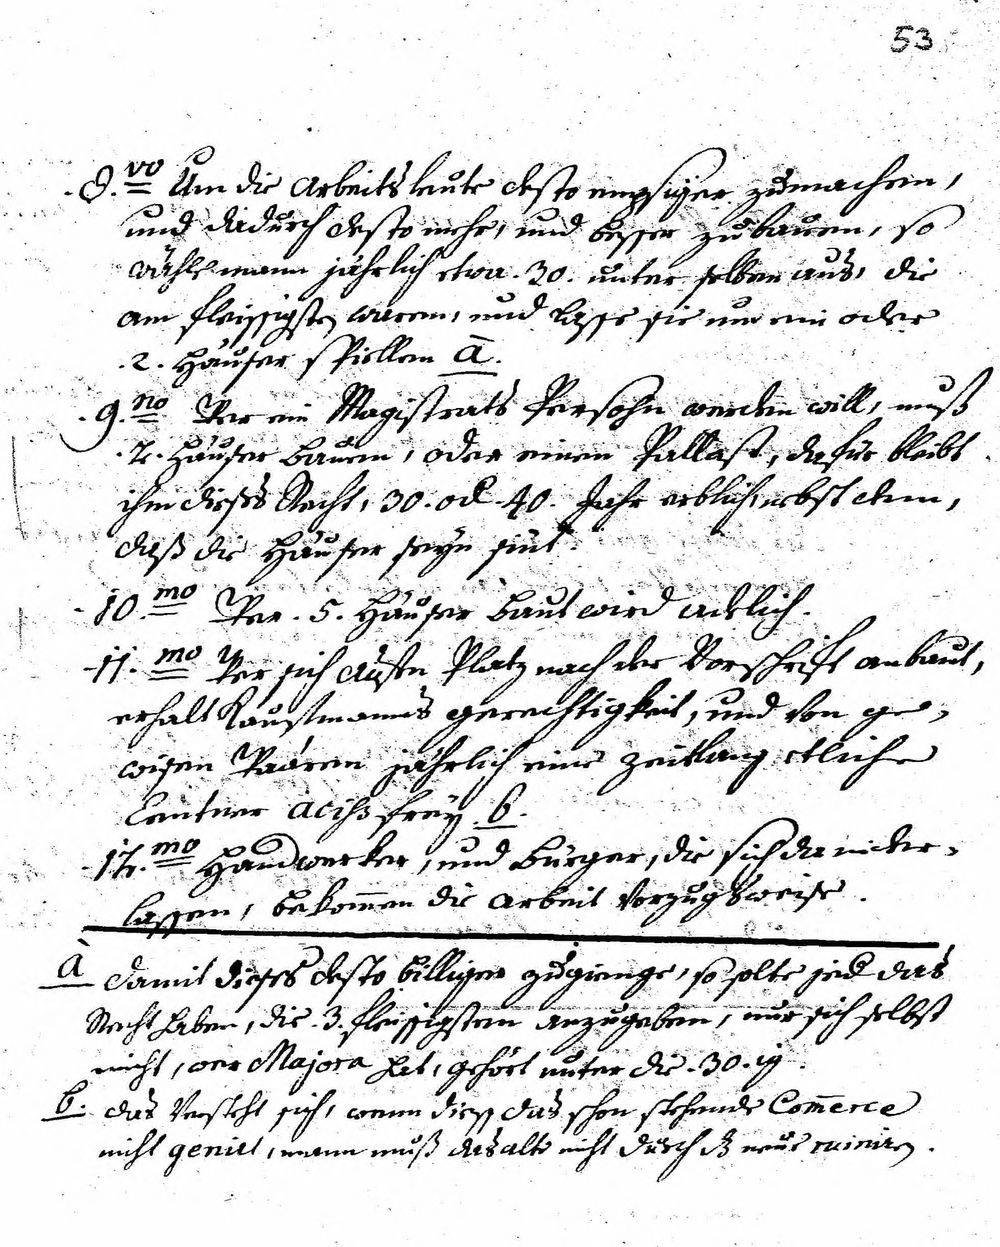 53
8.vo Um die Arbeitsleute desto empsiger zumachen,
und dadurch desto mehr, und besser zubauen, so
wähle mann jährlich etwa .30. unter selben aus, die
am fleissigsten waren, und lasse sie um ein oder
.2. Häuser spiellen a.
.9.no Wer ein Magistrats Persohn werden will, muß
.2. Häuser bauen, oder einen Pallast, dafür bleibt
ihm dieses Recht, 30. od 40. Jahr erblich, nebst dem,
daß die Häuser seyn sint.
10.mo Wer .5. Häuser baut wird adelich.
11.mo Wer sich auf den Platz nach der Vorschrift anbaut,
erhalt Kaufmanns gerechtigkeit, und von ge-
wisen Waaren jährlich eine zeitlang etliche
Centner acihs frey b.
12.mo Handwerker, und Bürger, die sich da nider-
lassen, bekom̅en die Arbeit Vorzugsweise.
a damit dieses desto billiger zugienge, so solte jed das
Recht haben, die .3. fleissigsten anzugeben, nur sich selbst
nicht, wer Majora hat, gehört unter die .30.ig.
b. das Versteht sich, wenn diess das schon stehende Com̅erce
nicht genirt, mann muß das alte nicht durch ds neue ruiniren.